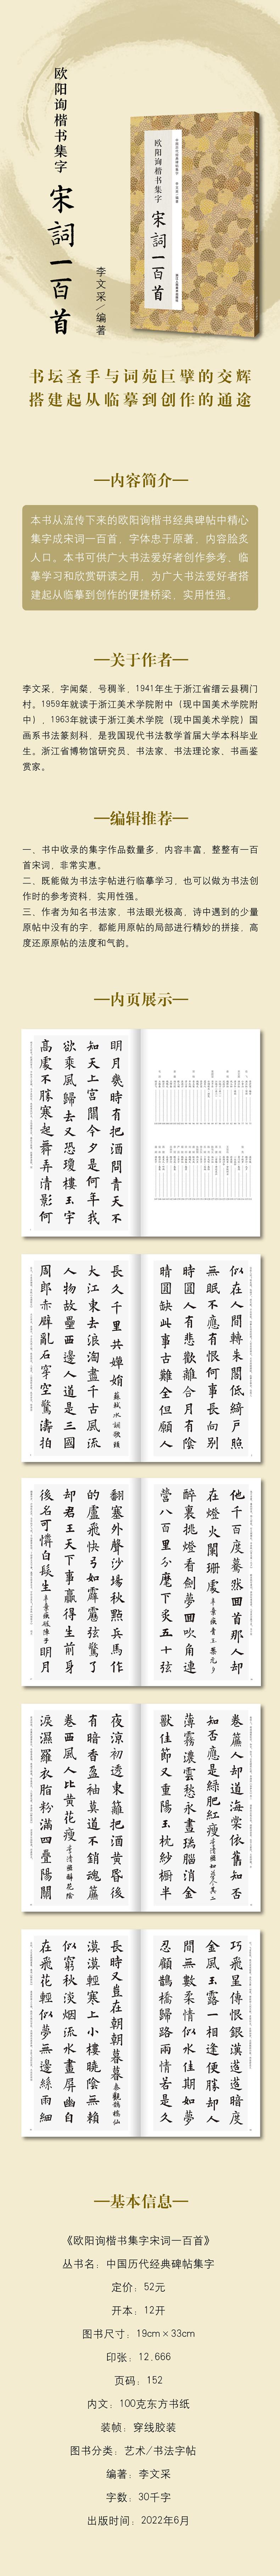 欧阳询楷书集字
宋詞一百首
李文采/编著
中国历代经典碑帖集字
李文采 编著
欧阳询楷书集字
宋詞一百首
书坛圣手与词苑巨擘的交辉
搭建起从临摹到创作的通途
—内容简介—
本书从流传下来的欧阳询楷书经典碑帖中精心
集字成宋词一百首，字体忠于原著，内容脍炙
人口。本书可供广大书法爱好者创作参考、临
摹学习和欣赏研读之用，为广大书法爱好者搭
建起从临摹到创作的便捷桥梁，实用性强。
—关于作者—
李文采，字闻粲，号稠半，1941年生于浙江省缙云县稠门
村。1959年就读于浙江美术学院附中（现中国美术学院附
中），1963年就读于浙江美术学院（现中国美术学院）国
画系书法篆刻科，是我国现代书法教学首届大学本科毕业
生。浙江省博物馆研究员、书法家、书法理论家、书画鉴
赏家。
—编辑推荐—
一、书中收录的集字作品数量多，内容丰富，整整有一百
首宋词，非常实惠。
二、既能做为书法字帖进行临摹学习，也可以做为书法创
作时的参考资料，实用性强。
三、作者为知名书法家，书法眼光极高，诗中遇到的少量
原帖中没有的字，都能用原帖的局部进行精妙的拼接，高
度还原原帖的法度和气韵。
—内页展示—
明月幾時有把酒問青天不
知天上宫闕今夕是何年我
欲乘風歸去又恐瓊樓玉宇
高處不勝寒起舞弄清影何
似在人間轉朱閣低綺戶照
無眠不應有恨何事長向别
時圓人有悲歡離合月有陰
晴圓缺此事古難全但願人
長久千里共嬋娟 蘇軾水調歌頭
大江東去浪淘盡千古風流
人物故壘西邊人道是三國
周郎赤壁亂石穿空驚濤拍
他千百度驀然回首那人却
在燈火闌珊處 辛棄疾青玉案元夕
醉裏挑燈看劍夢回吹角連
營八百里分麾下炙五十弦
翻塞外聲沙場秋點兵馬作
的盧飛快弓如霹靂弦驚了
却君王天下事贏得生前身
後名可憐白髮生 辛棄疾破陣子 明月
卷簾人却道海棠依舊知否
知否應是緑肥紅瘦 李清照如夢令其二
薄霧濃雲愁永晝瑞腦消金
獸佳節又重陽玉枕紗櫥半
夜涼初透東籬把酒黄昏後
有暗香盈袖莫道不銷魂簾
卷西風人比黄花瘦 李清照醉花陰
淚濕羅衣脂粉滿四疊陽關
巧飛星傳恨銀漢迢迢暗度
金風玉露一相逢便勝却人
間無數柔情似水佳期如夢
忍顧鵲橋歸路兩情若是久
長時又豈在朝朝暮暮 秦觀鵲橋仙
漠漠輕寒上小樓曉陰無賴
似窮秋淡烟流水畫屏幽自
在飛花輕似夢無邊絲雨細
—基本信息—
《欧阳询楷书集字宋词一百首》
丛书名：中国历代经典碑帖集字
定价：52元
开本：12开
图书尺寸：19cm×33cm
印张：12.666
页码：152
内文：100克东方书纸
装帧：穿线胶装
图书分类：艺术/书法字帖
编著：李文采
字数：30千字
出版时间：2022年6月